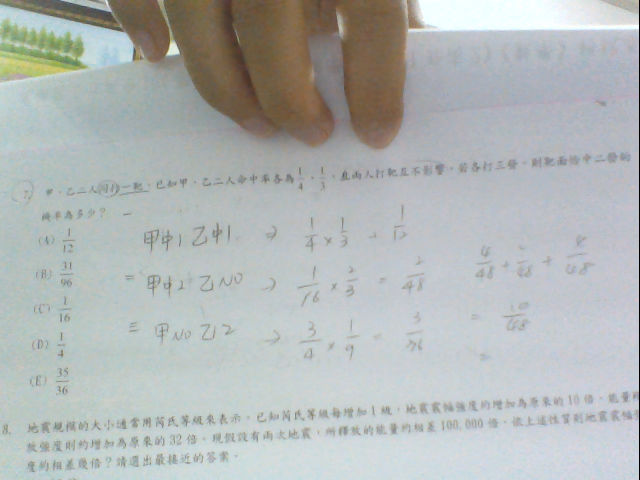 7. 甲、乙二人同打一靶,已知甲、乙二人命中率各為 1/4、1/3,且兩人打靶互不影響,若各打三發,則靶面恰中二發的
機率為多少?
(A) 1/12
(B) 31/96
(C) 1/16
(D) 1/4
(E) 35/36
一 甲中1 乙中1 ⇒ 1/4 × 1/3 = 1/12
二 甲中2 乙NO → 1/16 × 2/3 = 2/48
三 甲NO 乙2 → 3/4 × 1/9 = 3/36
4/48 + 2/48 + 4/48
= 10/48
=
8. 地震規模的大小通常用芮氏等級來表示,已知芮氏等級每增加1級,地震震幅強度約增加為原來的10倍,能量釋
放強度則約增加為原來的32倍。現假設有兩次地震,所釋放的能量約相差100,000倍,依上述性質則地震震幅
度約相差幾倍?請選出最接近的答案。